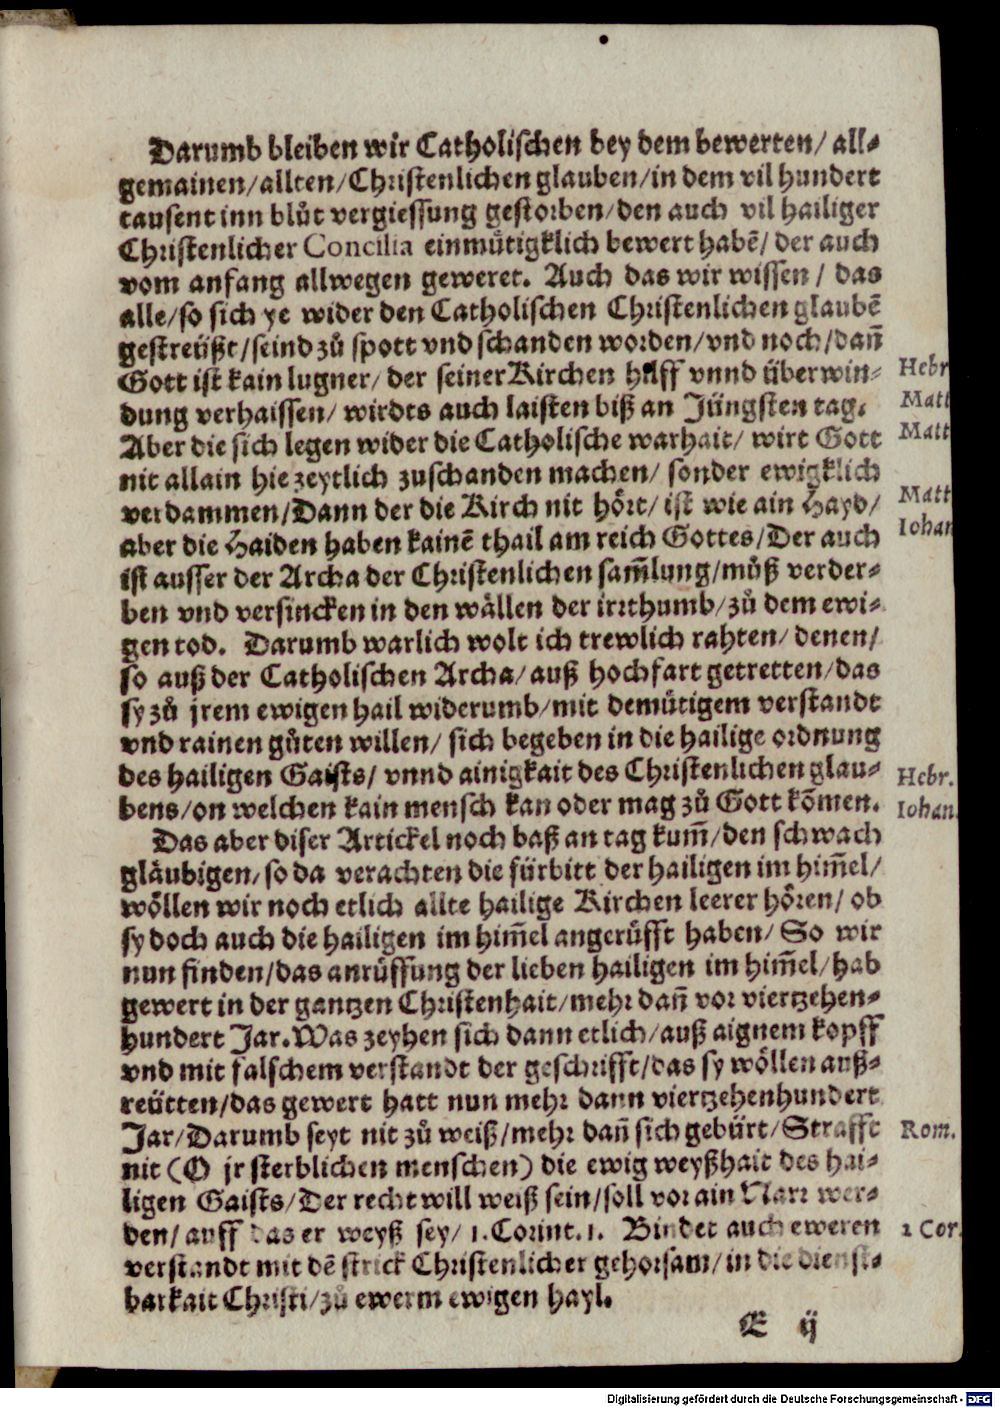 Darumb bleiben wir Catholischen bey dem bewerten/ all⸗
gemainen/allten/Christenlichen glauben/in dem vil hundert
tausent inn blůt vergiessung gestorben/den auch vil hailiger
Christenlicher Concilia einmůtigklich bewert habē/ der auch
vom anfang allwegen geweret. Auch das wir wissen / das
alle/so sich ye wider den Catholischen Christenlichen glaubē
gestreüßt/seind zů spott vnd schanden worden/vnd noch/dañ
Gott ist kain lugner/ der seiner Kirchen hilff vnnd überwin⸗
dung verhaissen/ wirdts auch laisten biß an Jüngsten tag.
Aber die sich legen wider die Catholische warhait/ wirt Gott
nit allain hie zeytlich zuschanden machen/ sonder ewigklich
verdammen/Dann der die Kirch nit hört/ ist wie ain Hayd/
aber die Haiden haben kainē thail am reich Gottes/Der auch
ist ausser der Archa der Christenlichen sam̃lung/můß verder⸗
ben vnd versincken in den wällen der irrthumb/zů dem ewi⸗
gen tod. Darumb warlich wolt ich trewlich rahten/ denen/
so auß der Catholischen Archa/ auß hochfart getretten/das
sy zů jrem ewigen hail widerumb/mit demütigem verstandt
vnd rainen gůten willen/ sich begeben in die hailige ordnung
des hailigen Gaists/ vnnd ainigkait des Christenlichen glau⸗
bens/on welchen kain mensch kan oder mag zů Gott kom̃en.
Das aber diser Artickel noch baß an tag kum̃/den schwach
gläubigen/so da verachten die fürbitt der hailigen im him̃el/
wöllen wir noch etlich allte hailige Kirchen leerer hören/ ob
sy doch auch die hailigen im him̃el angerůfft haben/ So wir
nun finden/das anrůffung der lieben hailigen im him̃el/hab
gewert in der gantzen Christenhait/mehr dañ vor viertzehen⸗
hundert Jar. Was zeyhen sich dann etlich/auß aignem kopff
vnd mit falschem verstandt der geschrifft/das sy wöllen auß⸗
reütten/das gewert hatt nun mehr dann viertzehenhundert
Jar/Darumb seyt nit zů weiß/mehr dañ sich gebürt/Strafft
nit (O jr sterblichen menschen) die ewig weyßhait des hai⸗
ligen Gaists/Der recht will weiß sein/soll vor ain Narr wer⸗
den/ auff das er weyß sey/ 1. Corint. 1. Bindet auch eweren
verstandt mit dē strick Christenlicher gehorsam/in die dienst⸗
barkait Christi/zů ewerm ewigen hayl.
E ij
Hebr
Matt
Matt
Matt
Iohan
Hebr.
Iohan.
Rom.
1 Cor.
Digitalisierung gefördert durch die Deutsche Forschungsgemeinschaft - DFG